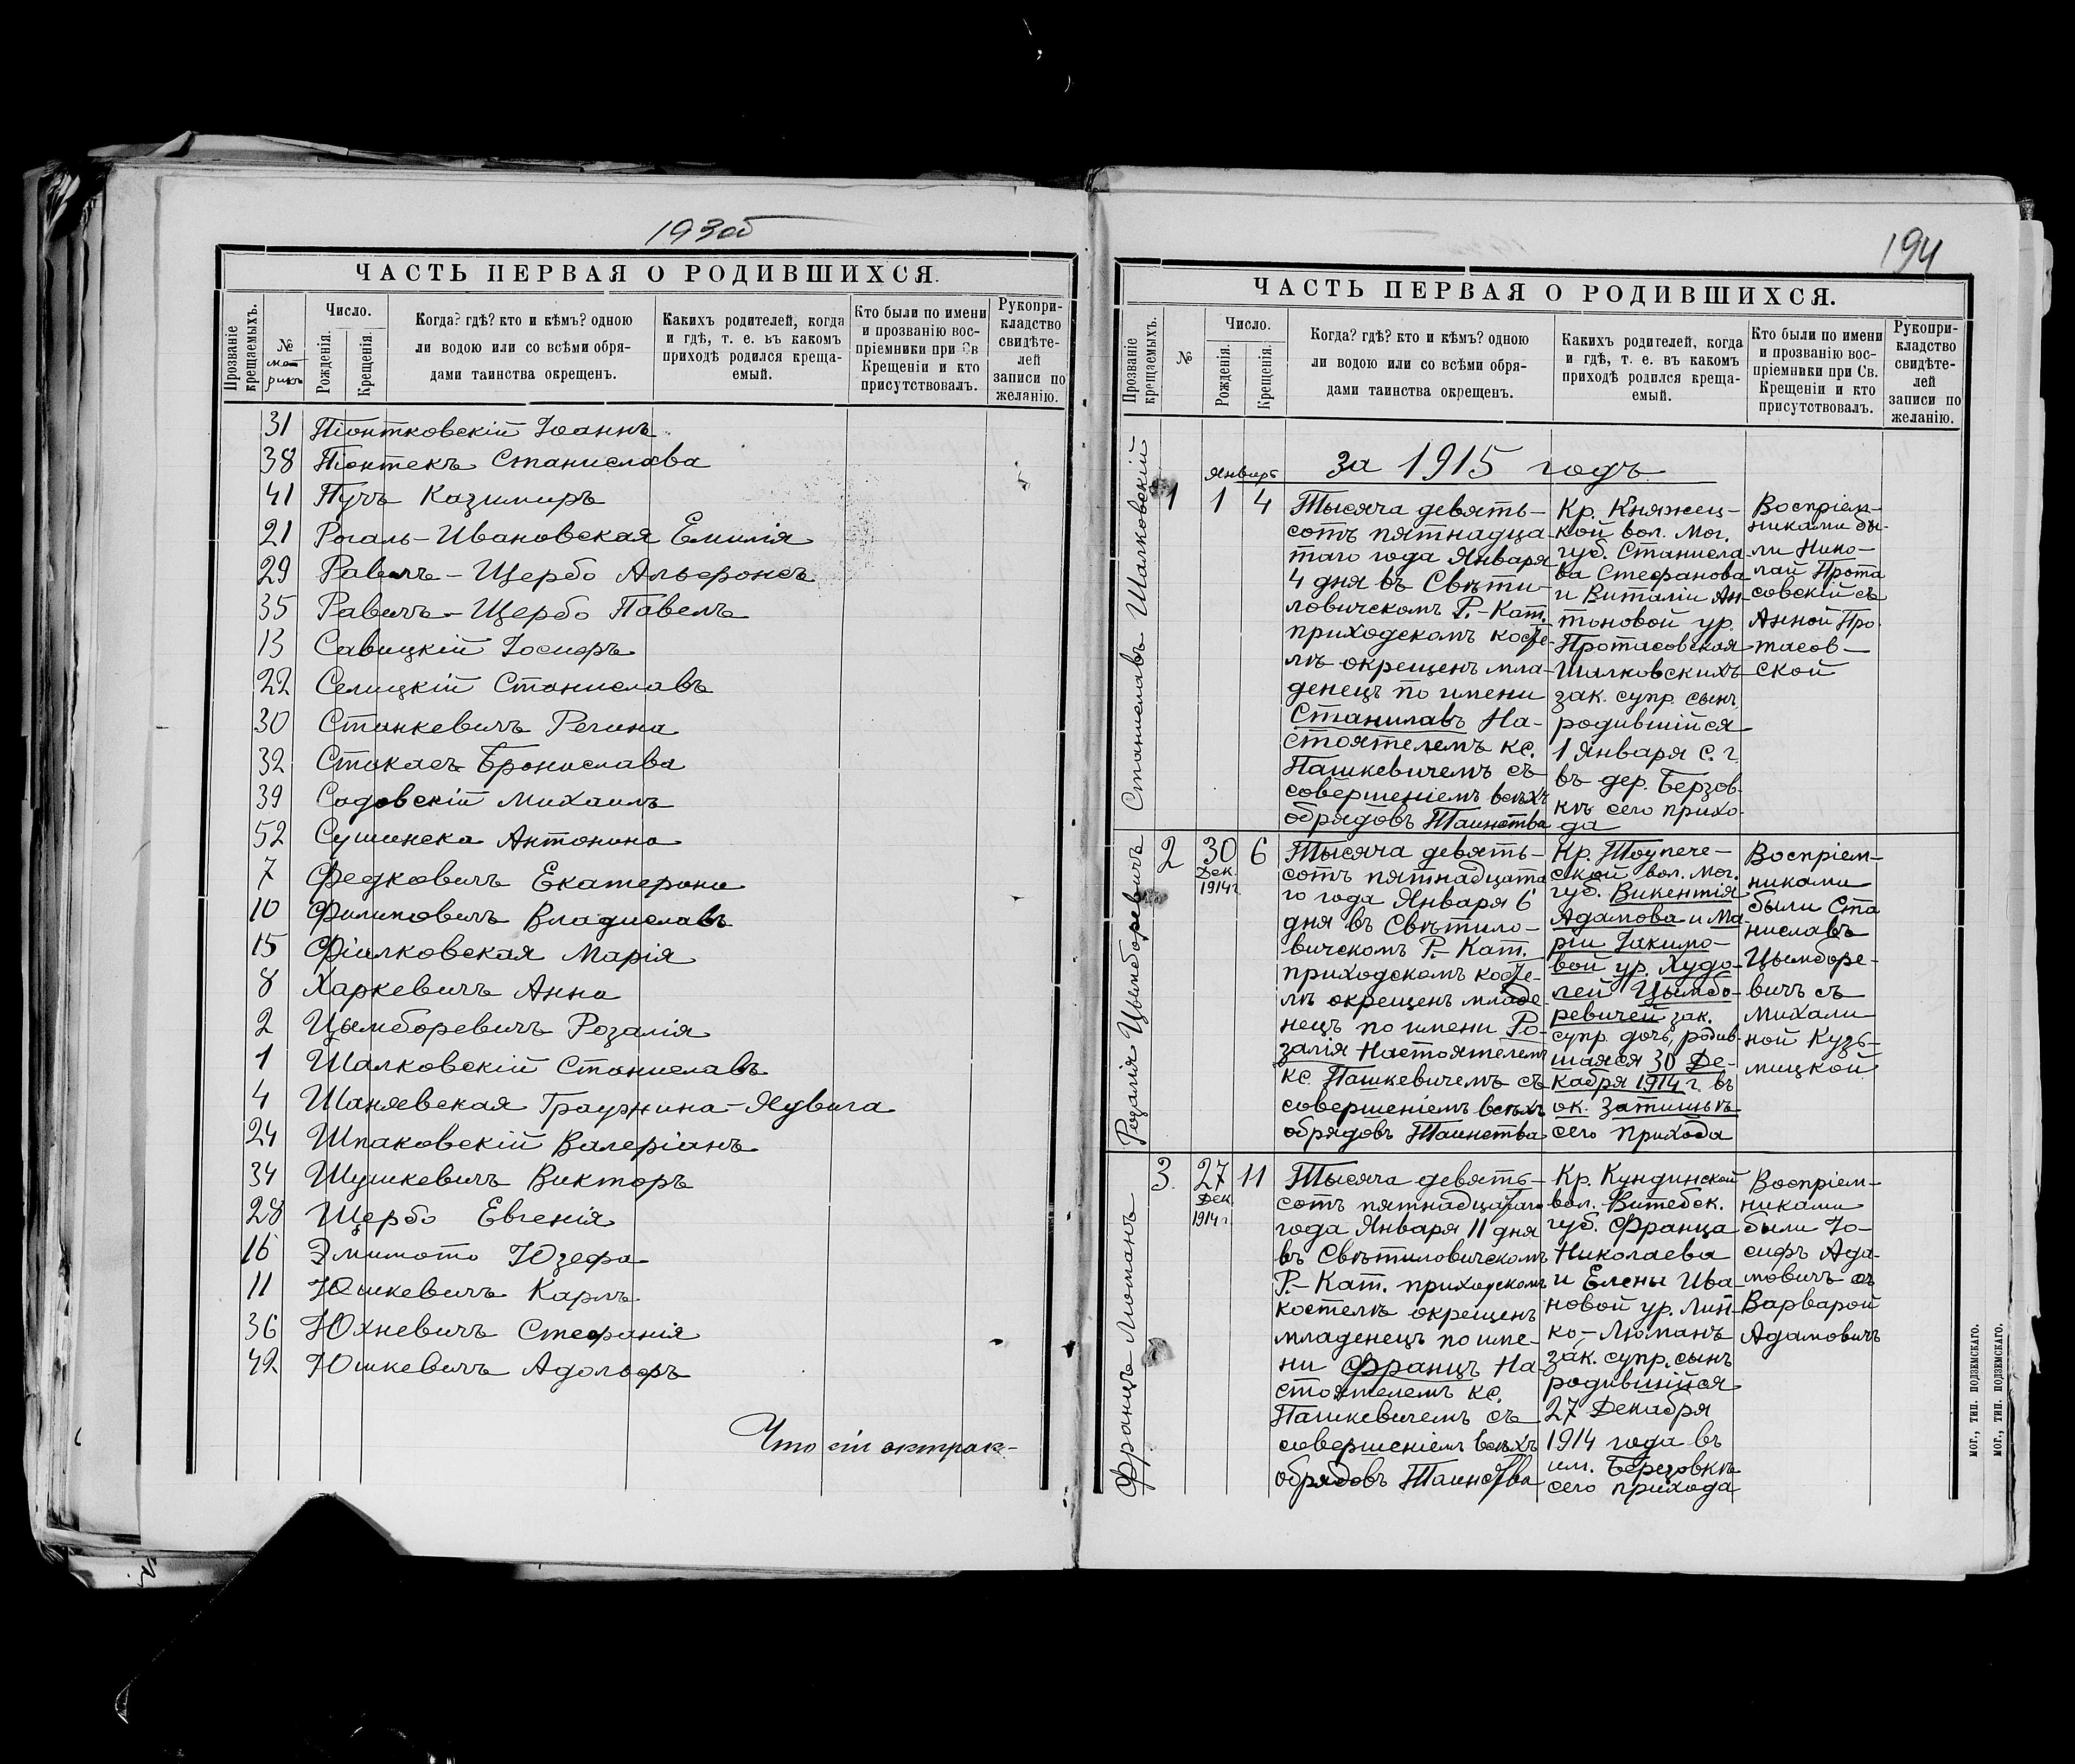 193об
ЧАСТЬ ПЕРВАЯ О РОДИВШИХСЯ.
Прозваніе крещаемыхъ.
№ метрикъ
Число.
Рожденія.
Крещенія.
Когда? гдѣ? кто и кѣмъ? одною
ли водою или со всѣми обря-
дами таинства окрещенъ.
Какихъ родителей, когда
и гдѣ, т. е. въ какомъ
приходѣ родился креща-
емый.
Кто были по имени
и прозванію вос-
пріемники при Св
Крещеніи и кто
присутствовалъ.
Рукопри-
кладство
свидѣте-
лей
записи по
желанію.
31 Піонтковскій Іоаннъ
38 Піонтекъ Станислава
41 Пучъ Казимиръ
21 Рогаль-Ивановская Емилія
29 Равичъ-Щербо Альфонсъ
35 Равичъ-Щербо Павелъ
13 Савицкій Іосифъ
22 Селицкій Станиславъ
30 Станкевичъ Регина
32 Стокасъ Бронислава
39 Садовскій Михаилъ
52 Сушинска Антонина
7 Федковичъ Екатерина
10 Филиповичъ Владиславъ
15 Фіалковская Марія
8 Харкевичъ Анна
2 Цымборевичъ Розалія
1 Шалковскій Станиславъ
4 Шаняевская Гражина-Ядвига
24 Шпаковскій Валеріанъ
34 Шушкевичъ Викторъ
28 Щербо Евгенія
16 Юзефа
11 Юшкевичъ Карлъ
36 Юхневичъ Стефанія
42 Юшкевичъ Адольфъ
Что сіи экстрак-
194
ЧАСТЬ ПЕРВАЯ О РОДИВШИХСЯ.
Прозваніе крещаемыхъ.
№
Число.
Рожденія.
Крещенія.
Когда? гдѣ? кто и кѣмъ? одною
ли водою или со всѣми обря-
дами таинства окрещенъ.
Какихъ родителей, когда
и гдѣ, т. е. въ какомъ
приходѣ родился креща-
емый.
Кто были по имени
и прозванію вос-
пріемники при Св.
Крещеніи и кто
присутствовалъ.
Рукопри-
кладство
свидѣте-
лей
записи по
желанію.
за 1915 годъ
Январь
Станиславъ Шалковскій
1 1 4
Тысяча девять-
сотъ пятнадца-
таго года Января
4 дня въ Свѣти-
ловичскомъ Р.-Кат.
приходскомъ косте-
лѣ окрещенъ мла-
денецъ по имени
Станилавъ На-
стоятелемъ кс.
Пашкевичемъ съ
совершеніемъ всѣхъ
обрядовъ Таинства
Кр. Княжец-
кой вол. Мог.
губ. Станисла
ва Стефанова
и Виталіи Ан-
тоновой ур.
Протасовская
Шалковскихъ
зак. супр. сынъ,
родившійся
1 Января с. г.
въ дер. Берзов-
кѣ сего прихо-
да
Воспріем-
никами бы-
ли Нико-
лай Прота
совскій съ
Анной Про-
тасов-
ской
Розалія Цымборевичъ
2 30 Дек. 1914 г. 6
Тысяча девять-
сотъ пятнадцата
го года Января 6
дня въ Свѣтило-
вичскомъ Р.-Кат.
приходскомъ косте-
лѣ окрещенъ младе-
нецъ по имени Ро-
залія Настоятелемъ
кс. Пашкевичемъ съ
совершеніемъ всѣхъ
обрядовъ Таинства
Кр. Тоупече-
ской вол. Мог.
губ. Викентія
Адамова и Ма-
ріи Іакимо-
вой ур. Худо-
лей Цымбо-
ревичей зак.
супр. дочь, родив-
шаяся 30 Де-
кабря 1914 г. въ
ок. Затишьѣ
сего прихода
Воспріем-
никами
были Ста
ниславъ
Цымборе-
вичъ съ
Михали
ной Кузь-
мицкой
Францъ Люманъ
3. 27 Дек. 1914 г. 11
Тысяча девять-
сотъ пятнадцатаго
года Января 11 дня
въ Свѣтиловичскомъ
Р.-Кат. приходскомъ
костелѣ окрещенъ
младенецъ по име-
ни Францъ На-
стоятелемъ кс.
Пашкевичемъ съ
совершеніемъ всѣхъ
обрядовъ Таинства
Кр. Кундинской
вол. Витебск.
губ. Франца
Николаева
и Елены Ива-
новой ур. Лип-
ко-Люманъ
зак. супр. сынъ
родившійся
27 Декабря
1914 года въ
им. Березовкѣ
сего прихода
Воспріем-
никами
были Іо-
сифъ Ада-
мовичъ съ
Варварой
Адамовичъ
МОГ., ТИП. ПОДЗЕМСКАГО.
МОГ., ТИП. ПОДЗЕМСКАГО.